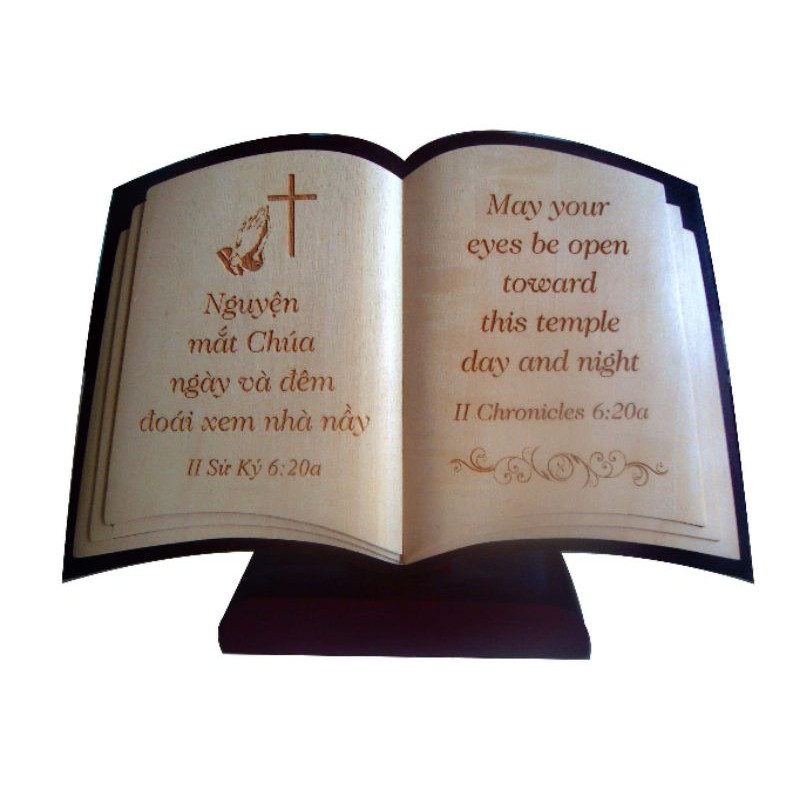 Nguyện
mắt Chúa
ngày và đêm
đoái xem nhà nầy
II Sử Ký 6:20a
May your
eyes be open
toward
this temple
day and night
II Chronicles 6:20a